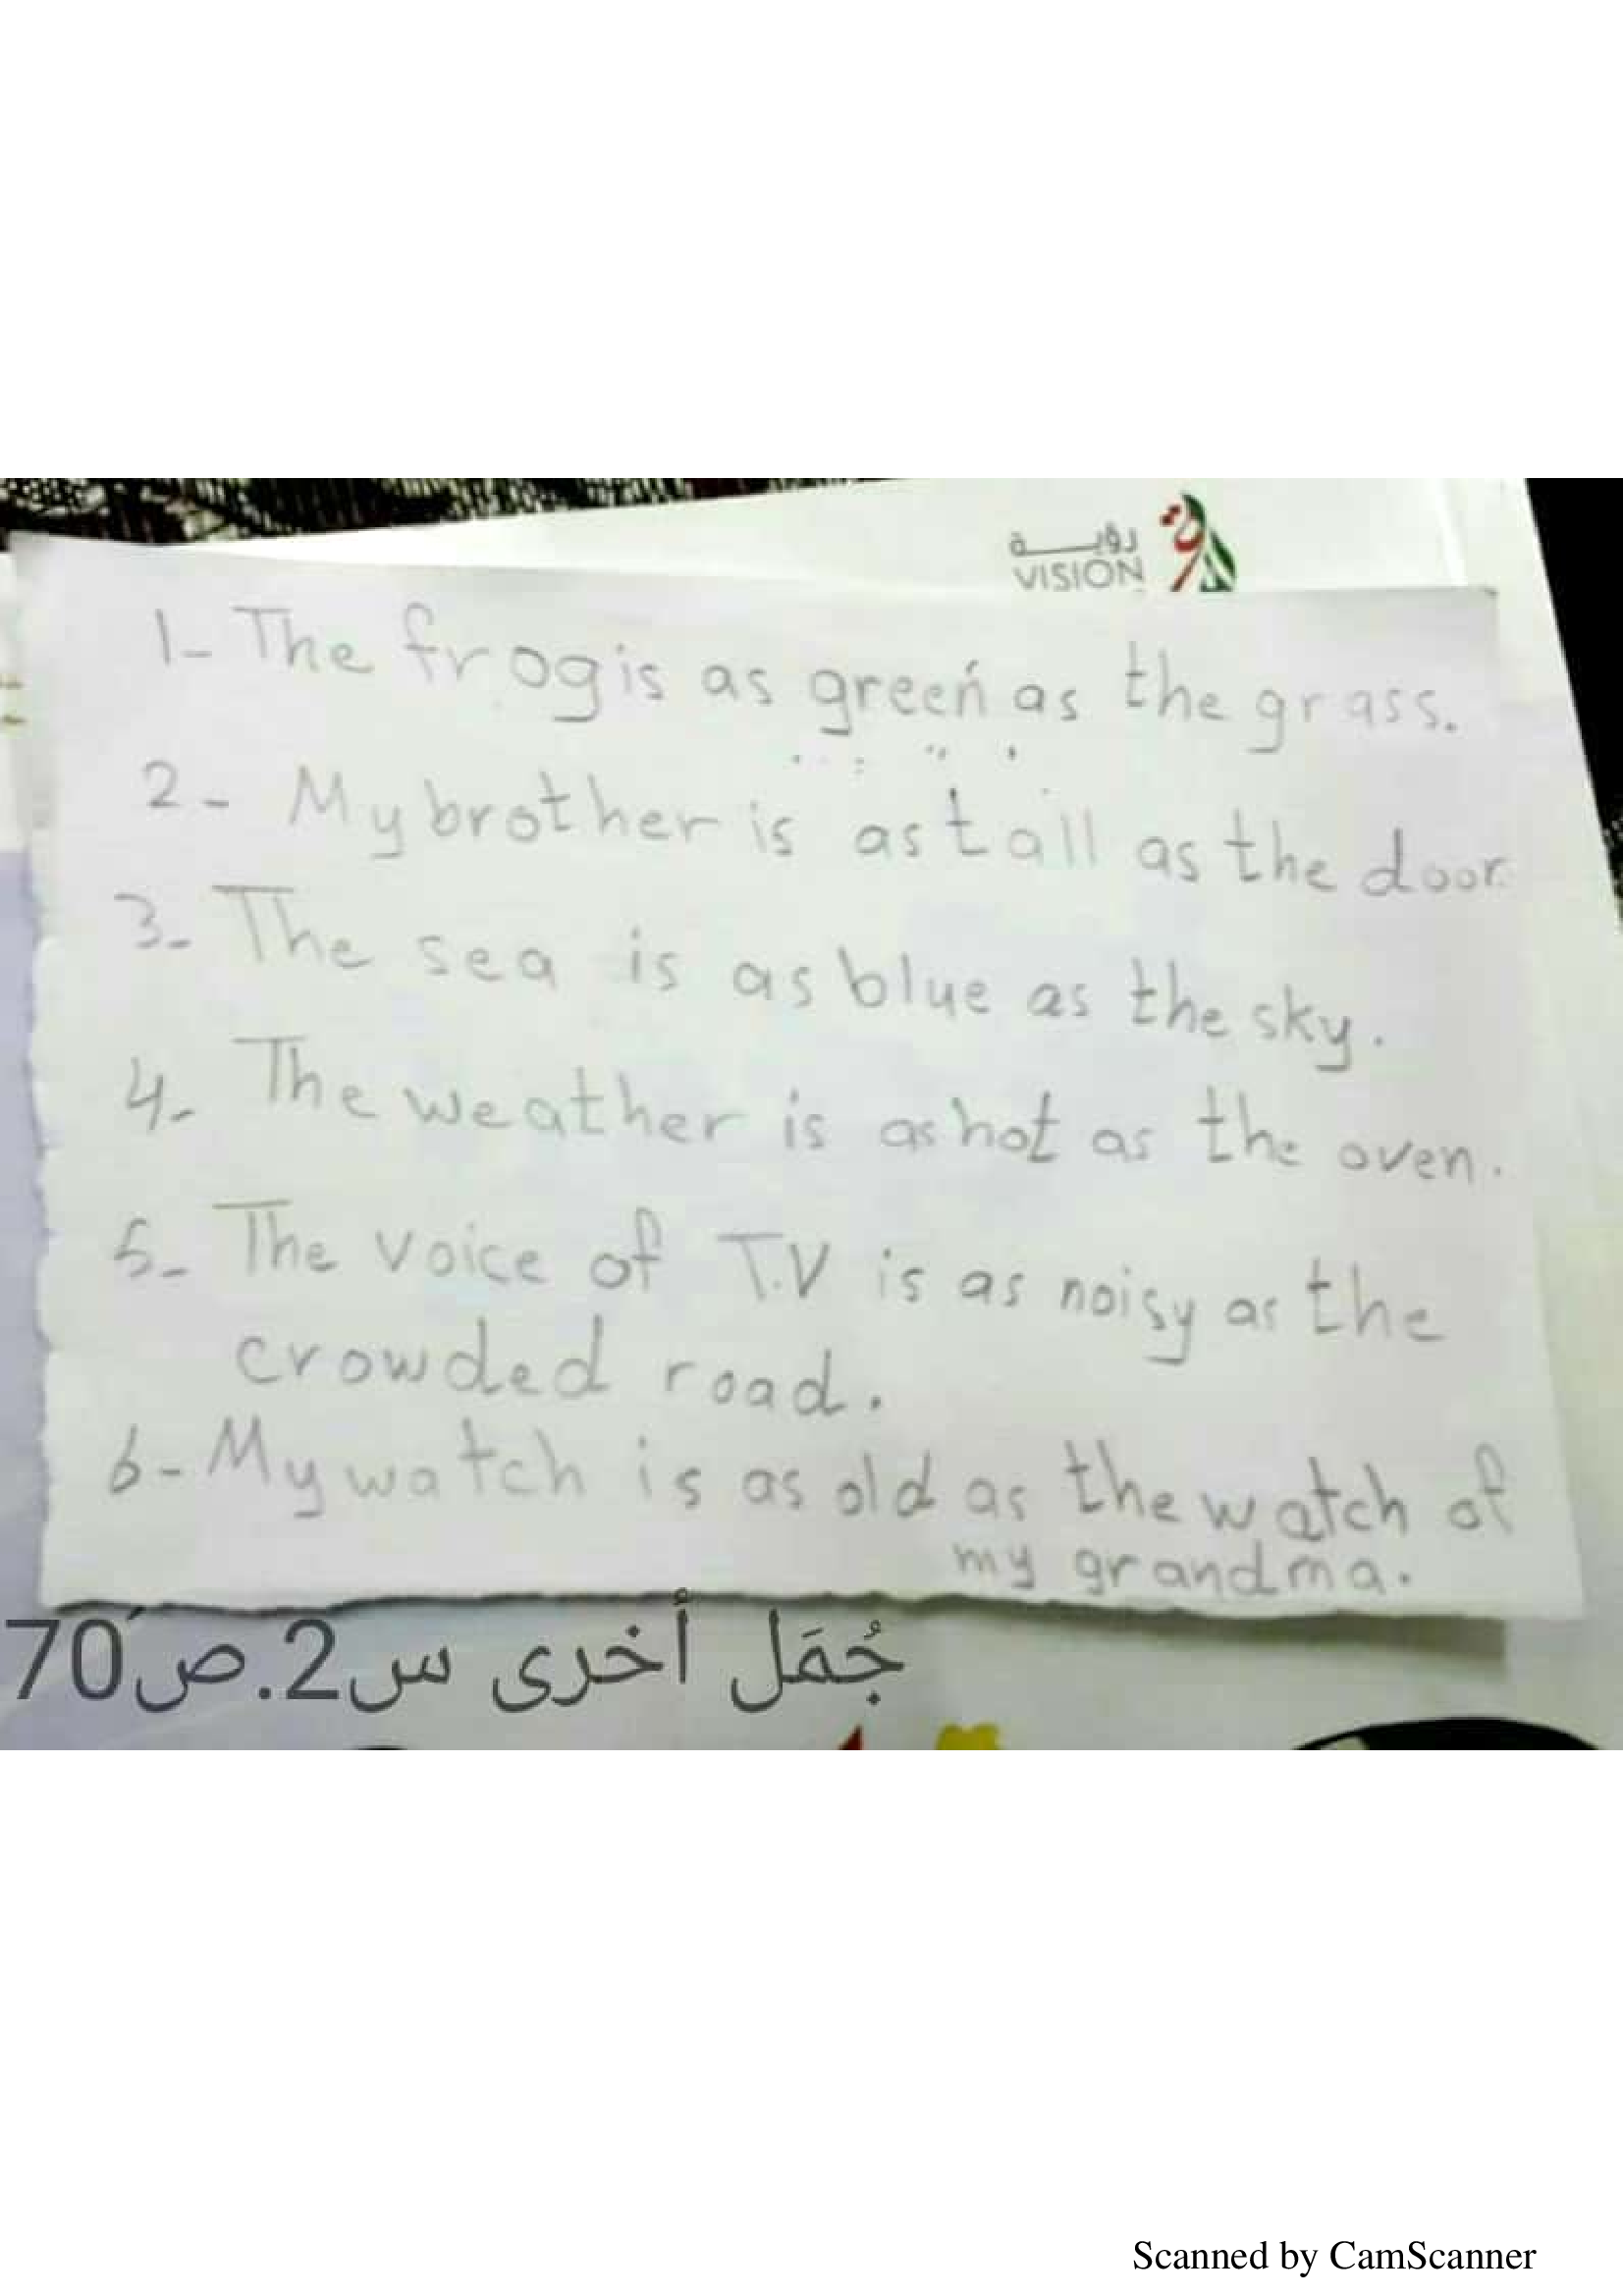 رؤية
VISION
1- The frog is as green as the grass.
2- My brother is as tall as the door.
3- The sea is as blue as the sky.
4- The weather is as hot as the oven.
5- The voice of T.V is as noisy as the
crowded road.
6- My watch is as old as the watch of
my grandma.
جُمَل أخرى س2.ص70
Scanned by CamScanner